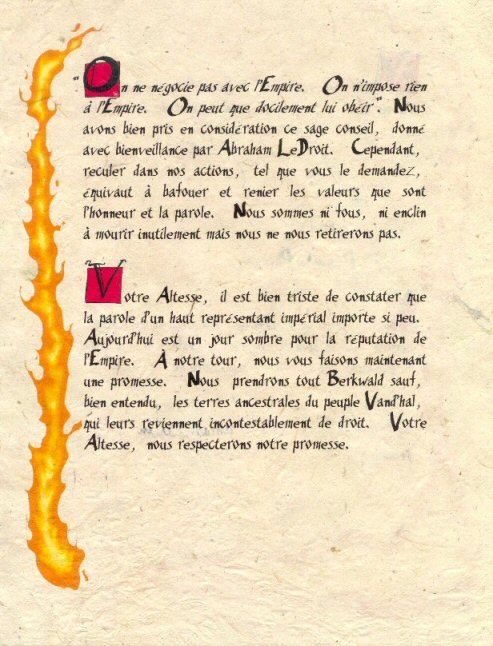 "On ne négocie pas avec l'Empire. On n'impose rien
à l'Empire. On peut que docilement lui obéir". Nous
avons bien pris en considération ce sage conseil, donné
avec bienveillance par Abraham LeDroit. Cependant,
reculer dans nos actions, tel que vous le demandez,
équivaut à bafouer et renier les valeurs que sont
l'honneur et la parole. Nous sommes ni fous, ni enclin
à mourir inutilement mais nous ne nous retirerons pas.
Votre Altesse, il est bien triste de constater que
la parole d'un haut représentant impérial importe si peu.
Aujourd'hui est un jour sombre pour la réputation de
l'Empire. À notre tour, nous vous faisons maintenant
une promesse. Nous prendrons tout Berkwald sauf,
bien entendu, les terres ancestrales du peuple Vand'hal,
qui leurs reviennent incontestablement de droit. Votre
Altesse, nous respecterons notre promesse.